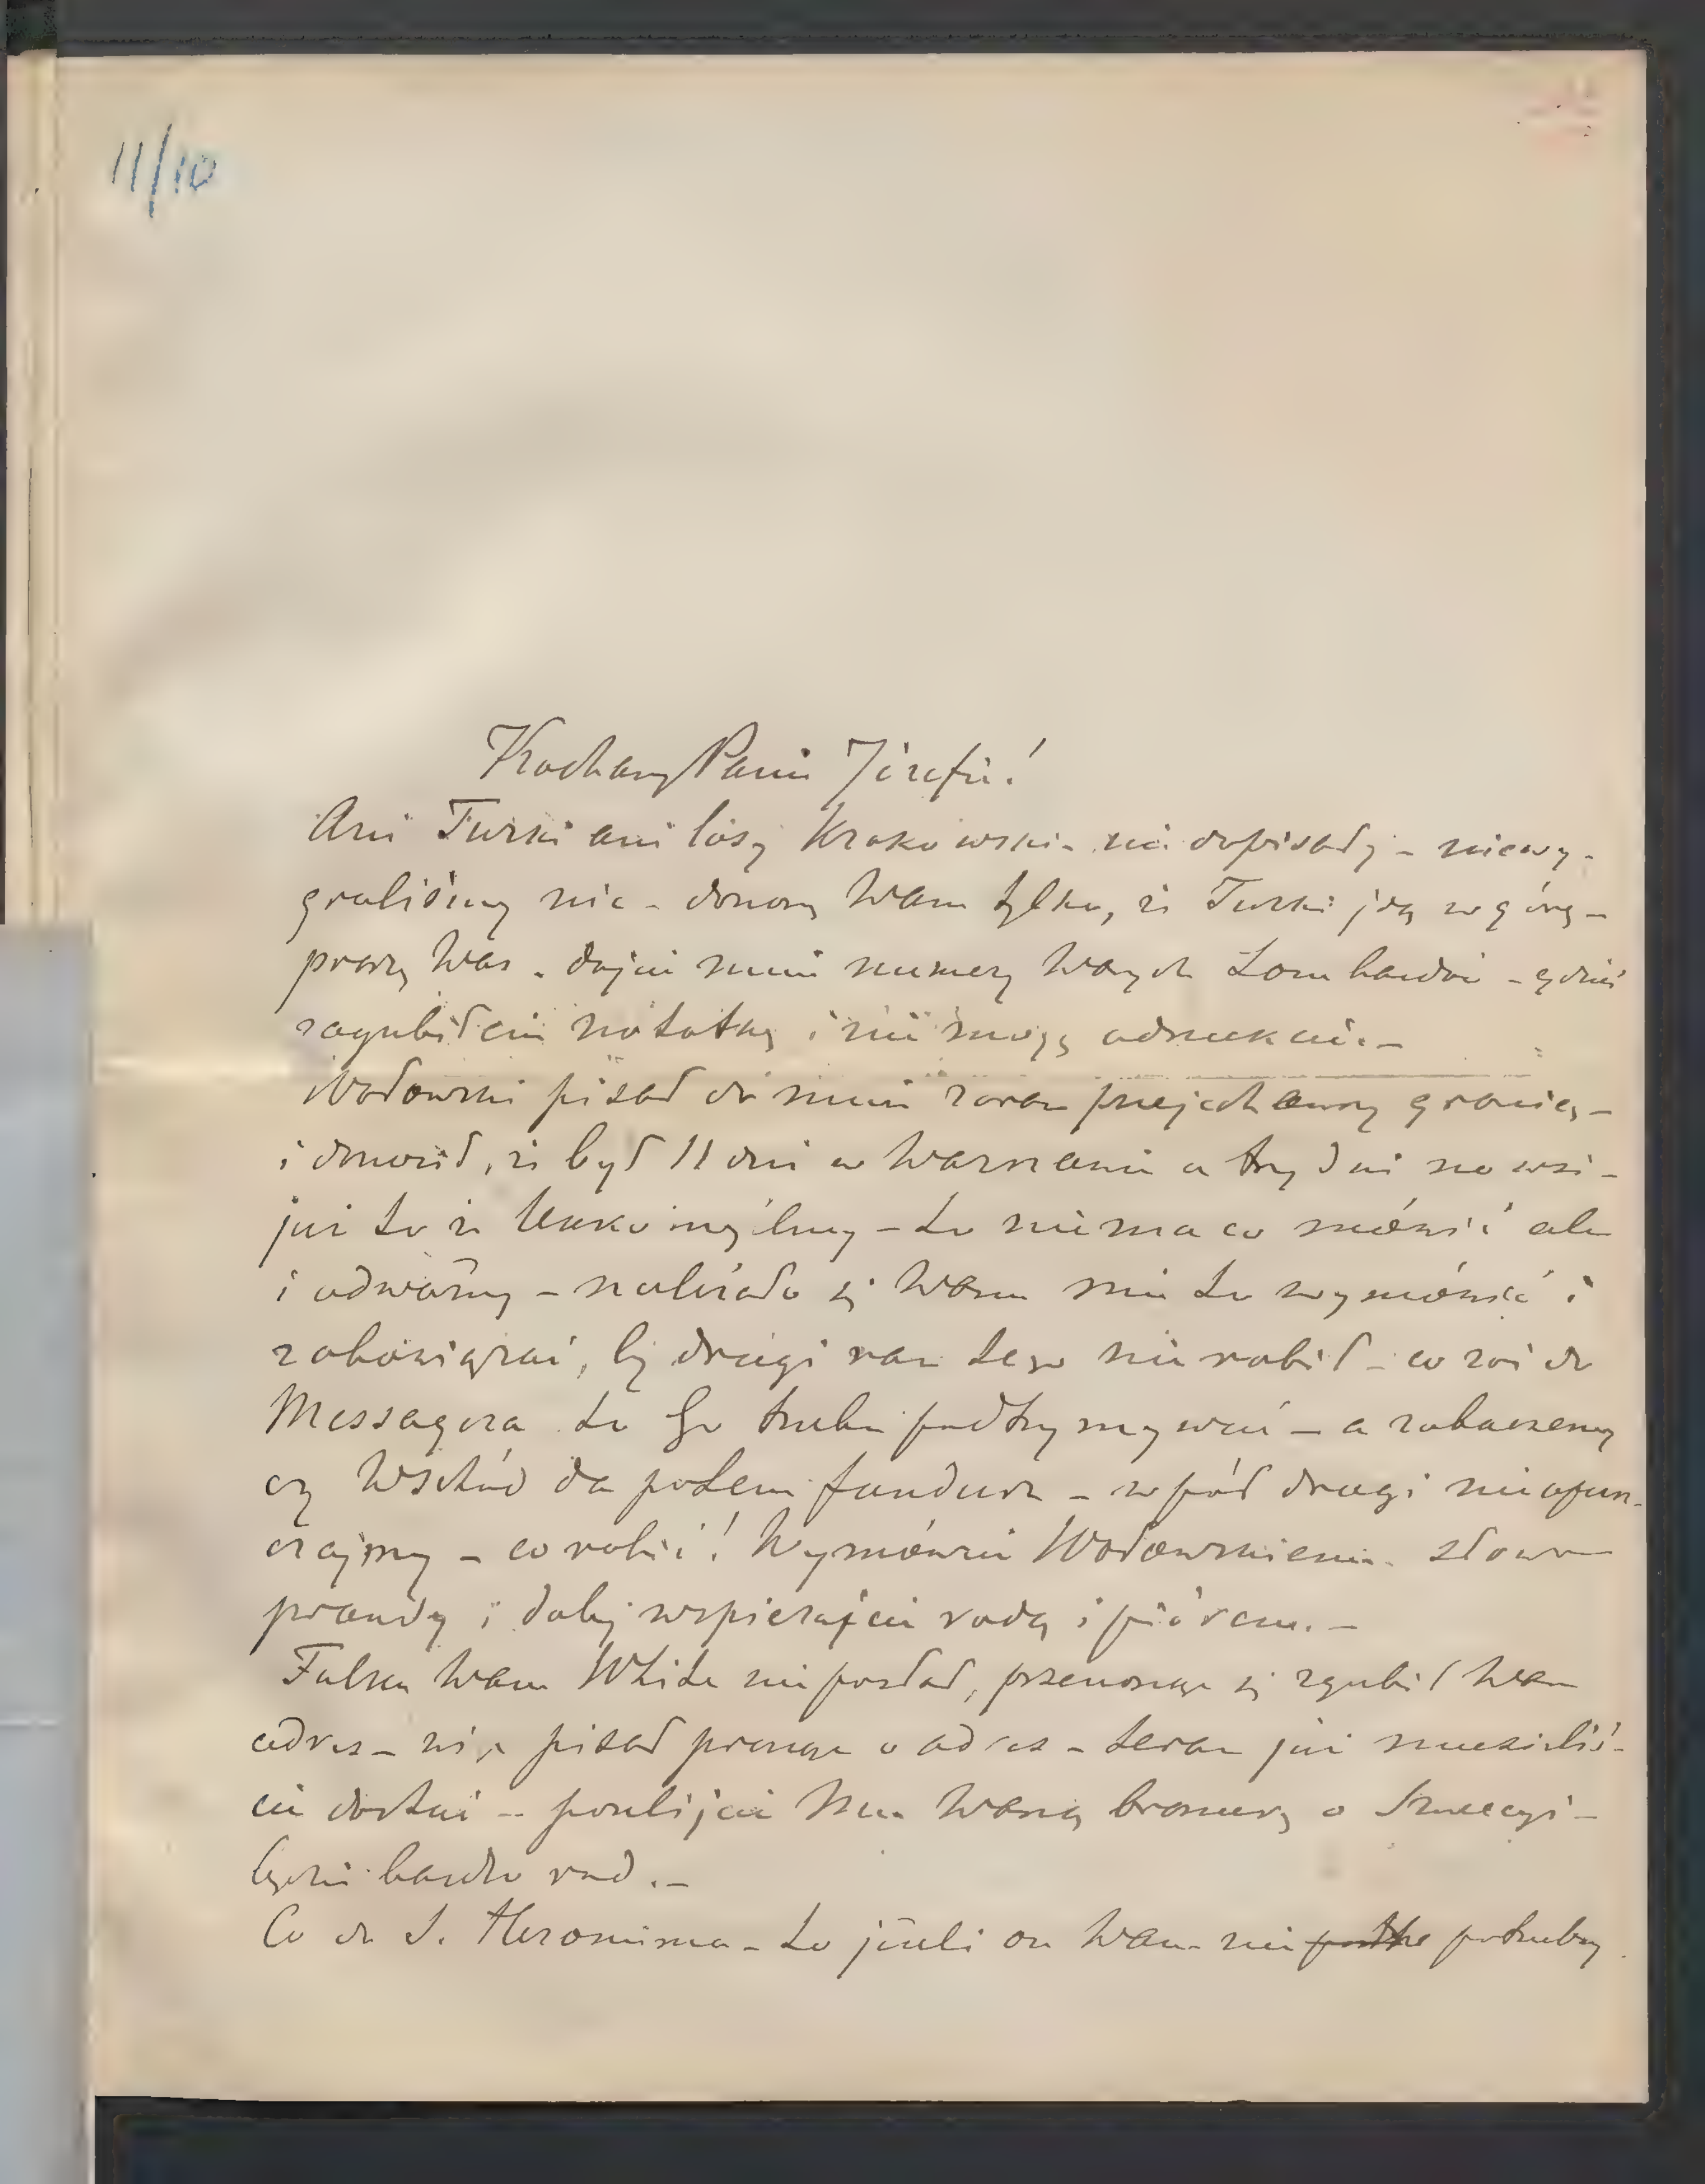 11/10
Kochany Panie Józefie!
Ani Turki ani losy Krakowskie nie dopisały – niewy-
graliśmy nic – donoszę Wam tylko, że Turki idą w górę –
proszę Was – dajcie mnie numery Waszych Lombardów – gdzieś
zagubiłem notatkę i nie mogę odszukać. –
Wołowski pisał do mnie zaraz przejechawszy granicę –
i donosił, że był 11 dni w Warszawie a trzy dni na wsi –
już to że lekkomyślny – to niema co mówić ale
i odważny – należało się Wam mu to wymówić i
zobowiązać, by drugi raz tego nie robił – co zaś do
Messagera to Go trzeba podtrzymywać – a zobaczemy
czy Wschód da potem fundusz – w pół drogi nie opusz-
czajmy – co robić! Wymówcie Wołowskiemu słowa
prawdy i dalej wspierajcie radą i piórem. –
Wam White nie posłał, przenosząc się zgubił Wam
adres – więc pisał prosząc o adres – teraz już musieliś-
cie dostać – poszlijcie Mu Waszą broszurę o Szwecyi –
będzie bardzo rad. –
Co do S. Hieronima – to jeżeli on Wam nie potrzebny